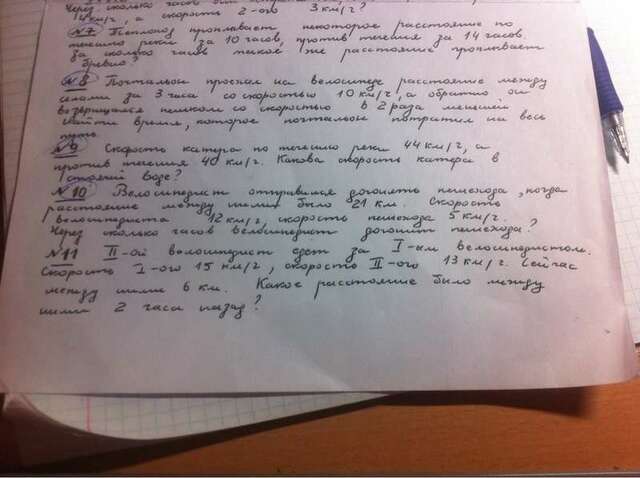 Через сколько часов
4км/г, а скорость 2-ого 3 км/г?
№7 Теплоход проплывает некоторое расстояние по
течению реки за 10 часов, против течения за 14 часов.
За сколько часов такое же расстояние проплывает
бревно?
№8 Почтальон проехал на велосипеде расстояние между
селами за 3 часа со скоростью 10 км/г, а обратно он
возвращался пешком со скоростью в 2 раза меньшей
Найти время, которое почтальон потратил на весь
путь.
№9 Скорость катера по течению реки 44 км/г, а
против течения 40 км/г. Какова скорость катера в
стоячей воде?
№10 Велосипедист отправился догонять пешехода, когда
расстояние между ними было 21 км. Скорость
велосипедиста 12 км/г, скорость пешехода 5 км/г.
Через сколько часов велосипедист догонит пешехода?
№11 II-ой велосипедист едет за I-ым велосипедистом.
Скорость I-ого 15 км/г, скорость II-ого 13 км/г. Сейчас
между ними 6 км. Какое расстояние было между
ними 2 часа назад?